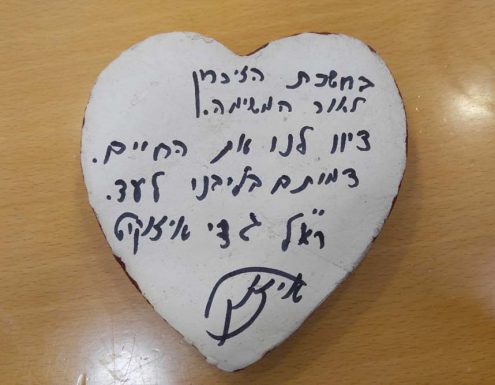 בחשכת הזיכרון
לאור המשימה.
ציוו לנו את החיים.
דמותם בליבנו לעד.
רא"ל גדי איזנקוט